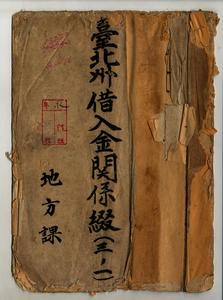 臺北州借入金関係綴(三ノ一)
地方課